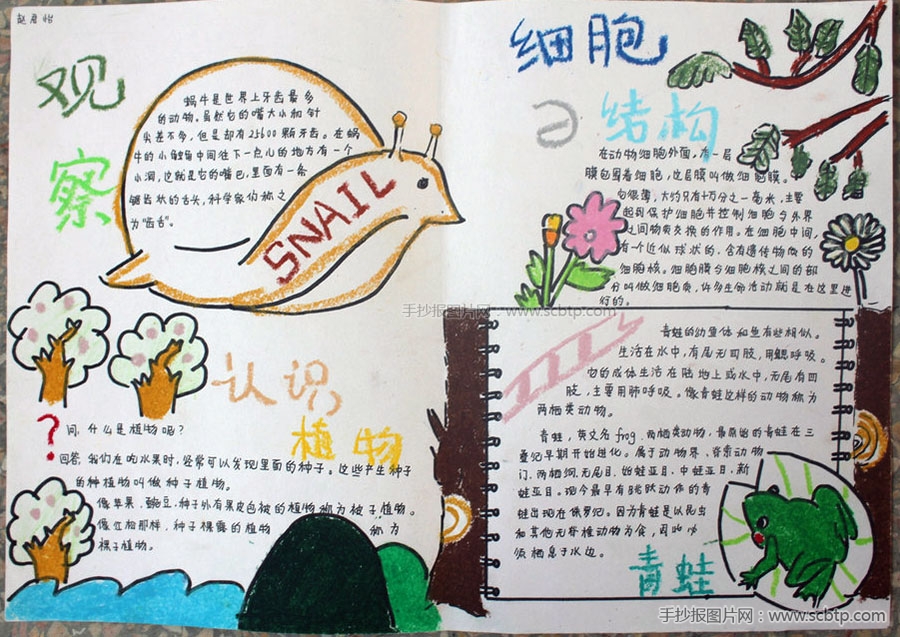 赵彦怡
观
察
蜗牛是世界上牙齿最多
的动物。虽然它的嘴大小和针
尖差不多，但是却有25600颗牙齿。在蜗
牛的小触角中间往下一点儿的地方有一个
小洞，这就是它的嘴巴，里面有一条
锯齿状的舌头，科学家们称之
为“齿舌”。
SNAIL
认识
植物
？问：什么是植物呢？
回答：我们在吃水果时，经常可以发现里面的种子。这些产生种子
的种植物叫做种子植物。
像苹果、豌豆，种子外有果皮包被的植物称为被子植物。
像位松那样，种子裸露的植物称为
裸子植物。
细胞
结构
在动物细胞外面，有一层
膜包围着细胞，这层膜叫做细胞膜。
很薄，大约只有十万分之一毫米，主要
起到保护细胞并控制细胞与外界
之间物质交换的作用。在细胞中间，
有一个近似球状的、含有遗传物质的
细胞核。细胞膜与细胞核之间的部
分叫做细胞质，许多生命活动就是在这里进
行的。
手抄报图片网：www.scbtp.com
青蛙的幼体和鱼有些相似。
生活在水中，有尾无四肢，用鳃呼吸。
它的成体生活在陆地上或水中，无尾有四
肢，主要用肺呼吸。像青蛙这样的动物称为
两栖类动物。
青蛙，英文名frog，两栖类动物，最原始的青蛙在三
叠纪早期开始进化。属于动物界、脊索动物
门、两栖纲、无尾目、始蛙亚目、中蛙亚目、新
蛙亚目。现今最早有跳跃动作的青
蛙出现在侏罗纪。因为青蛙是以昆虫
和其他无脊椎动物为食，
须栖息于水边。
青蛙
手抄报图片网：www.scbtp.com